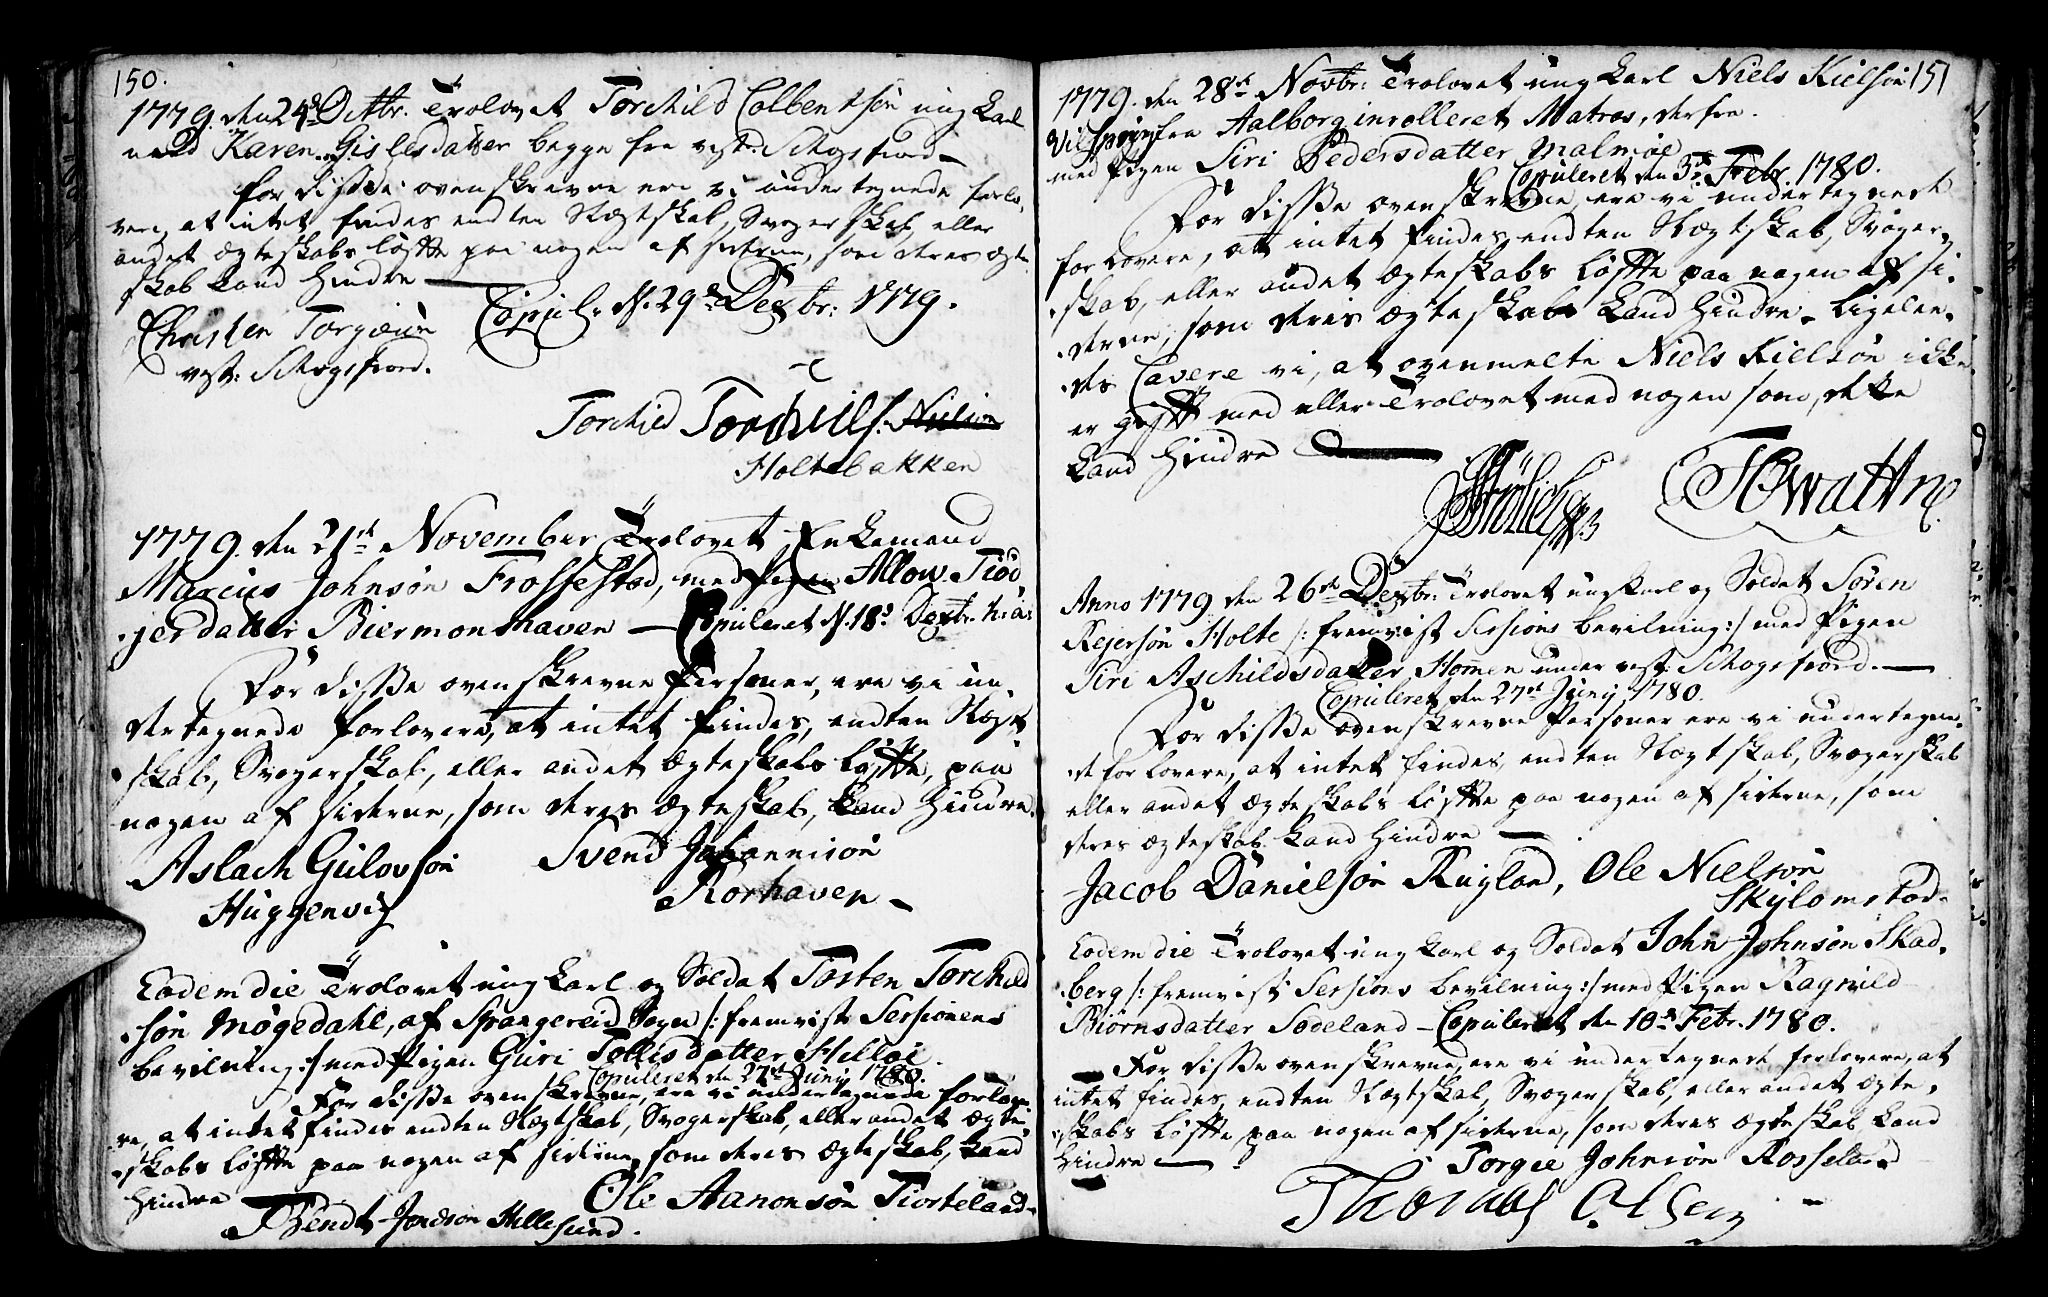 150.
1779. den 24d Octbr. Trolovet Torchild Colbentsön ung Karl
med Karen Gislesdatter begge fra vest: Schogsfiord
For disse ovenskrevne ere vi undertegnede forlo,
vere, at intet findes endten Slægtskab, Svogerskab, eller
andet ægteskabs løffte paa nogen af siderne, som deres ægte
skab kand hindre
Christen Torgiein Copul. d. 29d Dextbr: 1779.
vest: Schogsfiord.
Torchild Torchills:
Holtebakken
1779. den 21de November Trolovet Enkemand
Marcus Johnsön Frossestad, med Pigen Allow Tiöd,
gerdatter Biermonshaven – Copuleret d. 18d Dextbr.
For disse ovenskrevne Personer, ere vi un,
dertegnede forlovere, at intet findes, endten Slægt
skab, Svogerskab, eller andet ægteskabs løffte, paa
nogen af siderne, som deres ægteskab, kand hindre.
Aslach Gulovsön Svend Johannisön
Huggenvig Rorhaven –
Eodem die Trolovet ung Karl og Soldat Tosten Torchild
sön Møgedahl, af Spangereid Sogn /: fremvist Sessionens
bevilning :/ med Pigen Guri Tollisdatter Hilløe.
Copuleret den 27de Junÿ 1780.
For disse ovenskrevne, ere vi undertegnede forlove
re, at intet findes endten Slægtskab, Svogerskab, eller andet ægte,
skabs løffte paa nogen af siderne, som deres ægteskab, kand
hindre Ole Aanonsön Tiorteland
Bendt Jordson Hillesund.
151
1779. den 28de Novbr: Trolovet ung Karl Niels Kielsön
fra Aalborg inrolleret Matros, derfra.
med Pigen Siri Pedersdatter Malmöe
Copuleret den 3de Febr. 1780.
For disse ovenskrevne, ere vi undertegnede
forlovere, at intet findes, endten Slægtskab, Svoger,
skab, eller andet ægteskabs løffte paa nogen af si,
derne, som deres ægteskab kand hindre. Ligelee,
des Cavere vi, at ovenmelte Niels Kielsön ikke
er gifft med eller Trolovet med nogen som, dette
kand hindre
Anno 1779. den 26de Dextbr: Trolovet ung Karl og Soldat Sören
Rejersön Holte /: fremvist Sessions bevilning :/ med Pigen
Siri Aschildsdatter Homen under vest: Schogsfiord. –
Copuleret den 27de Junÿ 1780.
For disse ovenskrevne Personer ere vi undertegne,
de forlovere, at intet findes, endten Slægtskab, Svogerskab
eller andet ægteskabs løffte paa nogen af siderne, som
deres ægteskab kand hindre
Jacob Danielsön Rugland, Ole Nielsön
Skÿlomstad.
Eodem die Trolovet ung Karl og Soldat John Johnsön Skad,
berg /: fremvist Sessions bevilning :/ med Pigen Ragnild
Biörnsdatter Södeland – Copuleret den 10de Febr. 1780.
For disse ovenskrevne, ere vi undertegnede forlovere, at
intet findes, endten Slægtskab, Svogerskab, eller andet ægte,
skabs løffte, paa nogen af siderne, som deres ægteskab kand
hindre
Torgie Johnsön Rosseland
Thomas Olsen